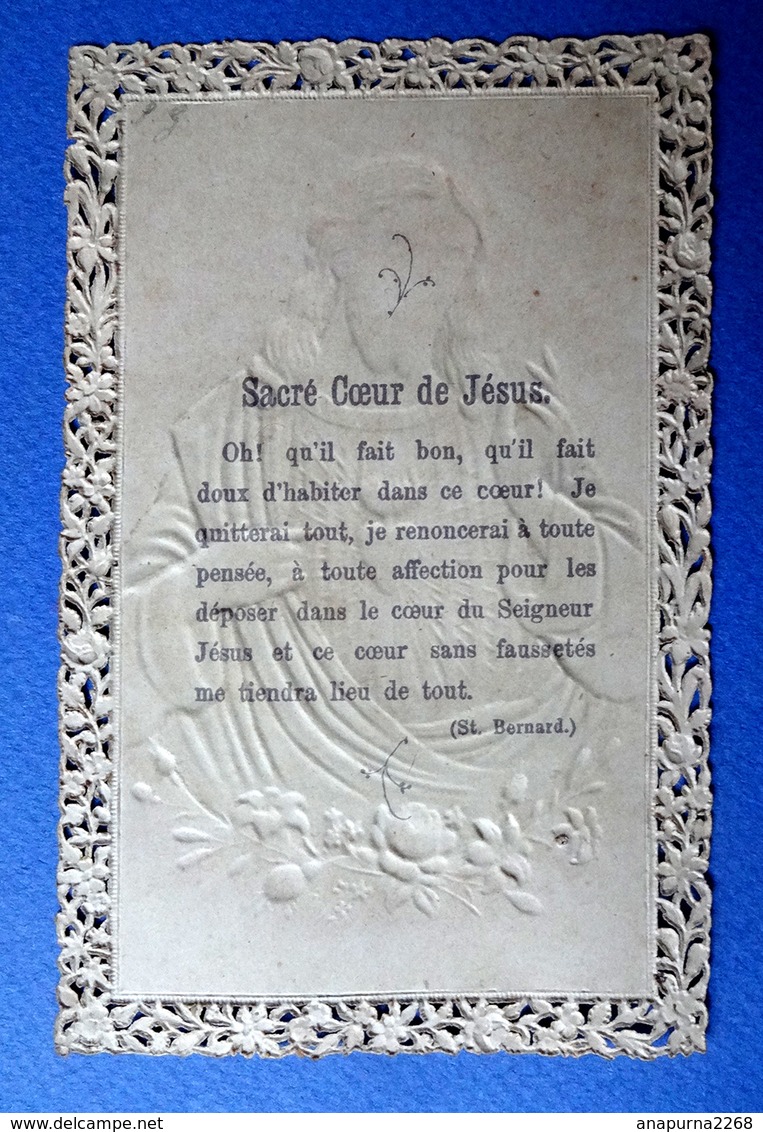 Sacré Cœur de Jésus.
Oh! qu'il fait bon, qu'il fait
doux d'habiter dans ce cœur! Je
quitterai tout, je renoncerai à toute
pensée, à toute affection pour les
déposer dans le cœur du Seigneur
Jésus et ce cœur sans faussetés
me tiendra lieu de tout.
(St. Bernard.)
Delcampe.net
anapurna2268